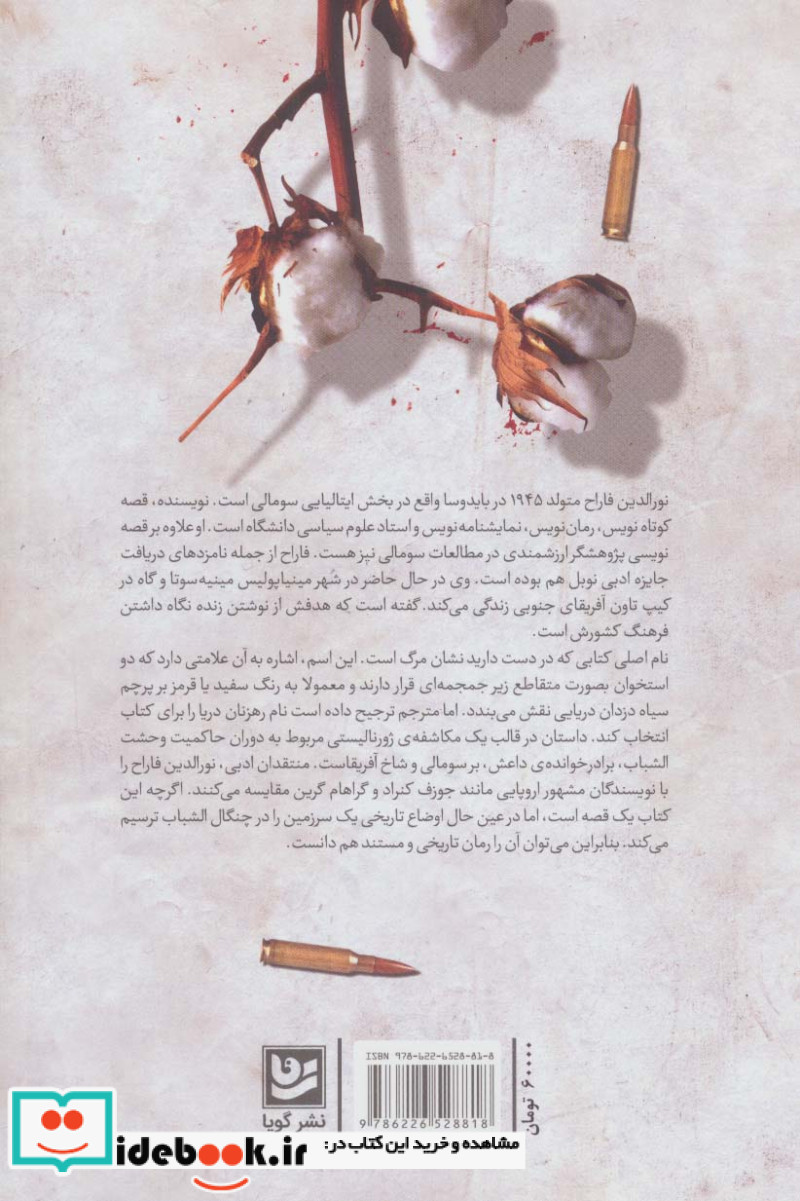 نورالدین فاراح متولد ۱۹۴۵ در بایدوسا واقع در بخش ایتالیایی سومالی است. نویسنده، قصه
کوتاه نویس، رمان‌نویس، نمایشنامه‌نویس و استاد علوم سیاسی دانشگاه است. او علاوه بر قصه
نویسی پژوهشگر ارزشمندی در مطالعات سومالی نیز هست. فاراح از جمله نامزدهای دریافت
جایزه ادبی نوبل هم بوده است. وی در حال حاضر در شهر مینیاپولیس مینیه‌سوتا و گاه در
کیپ تاون آفریقای جنوبی زندگی می‌کند. گفته است که هدفش از نوشتن زنده نگاه داشتن
فرهنگ کشورش است.
نام اصلی کتابی که در دست دارید نشان مرگ است. این اسم، اشاره به آن علامتی دارد که دو
استخوان بصورت متقاطع زیر جمجمه‌ای قرار دارند و معمولا به رنگ سفید یا قرمز بر پرچم
سیاه دزدان دریایی نقش می‌بندد. اما مترجم ترجیح داده است نام رهزنان دریا را برای کتاب
انتخاب کند. داستان در قالب یک مکاشفه‌ی ژورنالیستی مربوط به دوران حاکمیت وحشت
الشباب، برادرخوانده‌ی داعش، بر سومالی و شاخ آفریقاست. منتقدان ادبی، نورالدین فاراح را
با نویسندگان مشهور اروپایی مانند جوزف کنراد و گراهام گرین مقایسه می‌کنند. اگرچه این
کتاب یک قصه است، اما در عین حال اوضاع تاریخی یک سرزمین را در چنگال الشباب ترسیم
می‌کند. بنابراین می‌توان آن را رمان تاریخی و مستند هم دانست.
ISBN 978-622-6528-81-8
9 786226 528818
۶۰۰۰۰ تومان
نشر گویا
مشاهده و خرید این کتاب در:
idebook.ir